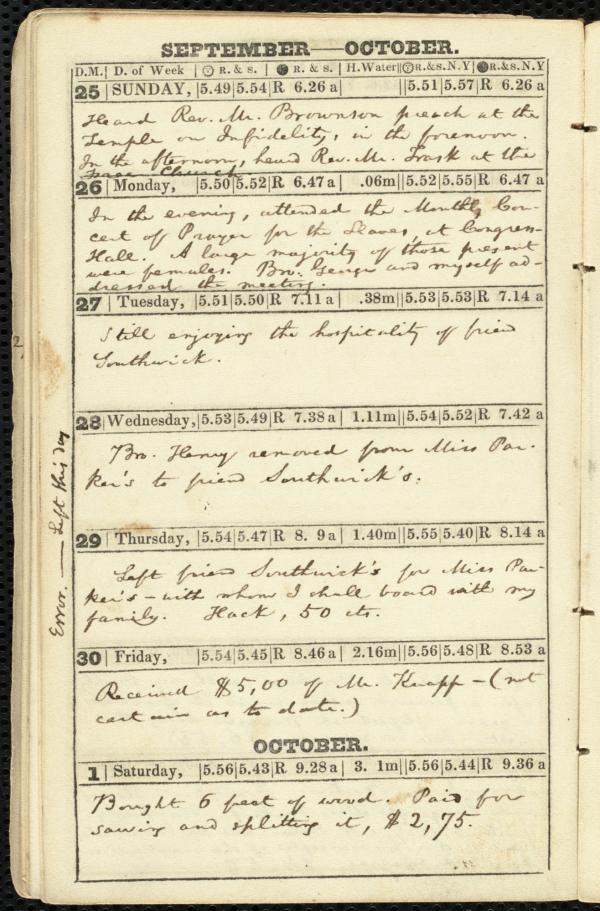 SEPTEMBER—OCTOBER.
D.M. | D. of Week | R. & s. | R. & s. | H.Water || R.&s.N.Y | R.&s.N.Y
25 | SUNDAY, | 5.49 | 5.54 | R 6.26 a | || 5.51 | 5.57 | R 6.26 a
Heard Rev. Mr. Brownson preach at the
Temple on Infidelity, in the forenoon.
In the afternoon, heard Rev. Mr. Trask at the
Free Church
26 | Monday, | 5.50 | 5.52 | R 6.47 a | .06m || 5.52 | 5.55 | R 6.47 a
In the evening, attended the Monthly Con-
cert of Prayer for the Slaves, at Congress
Hall. A large majority of those present
were females. Bro. George and myself ad-
dressed the meeting.
27 | Tuesday, | 5.51 | 5.50 | R 7.11 a | .38m || 5.53 | 5.53 | R 7.14 a
Still enjoying the hospitality of friend
Southwick.
28 | Wednesday, | 5.53 | 5.49 | R 7.38 a | 1.11m || 5.54 | 5.52 | R 7.42 a
Bro. Henry removed from Miss Par-
ker's to friend Southwick's.
Error. — Left this day
29 | Thursday, | 5.54 | 5.47 | R 8. 9a | 1.40m || 5.55 | 5.40 | R 8.14 a
Left friend Southwick's for Miss Par-
ker's – with whom I shall board with my
family. Hack, 50 cts.
30 | Friday, | 5.54 | 5.45 | R 8.46 a | 2.16m || 5.56 | 5.48 | R 8.53 a
Received $5,00 of Mr. Knapp – (not
certain as to date.)
OCTOBER.
1 | Saturday, | 5.56 | 5.43 | R 9.28 a | 3. 1m || 5.56 | 5.44 | R 9.36 a
Bought 6 feet of wood. Paid for
sawing and splitting it, $2,75.